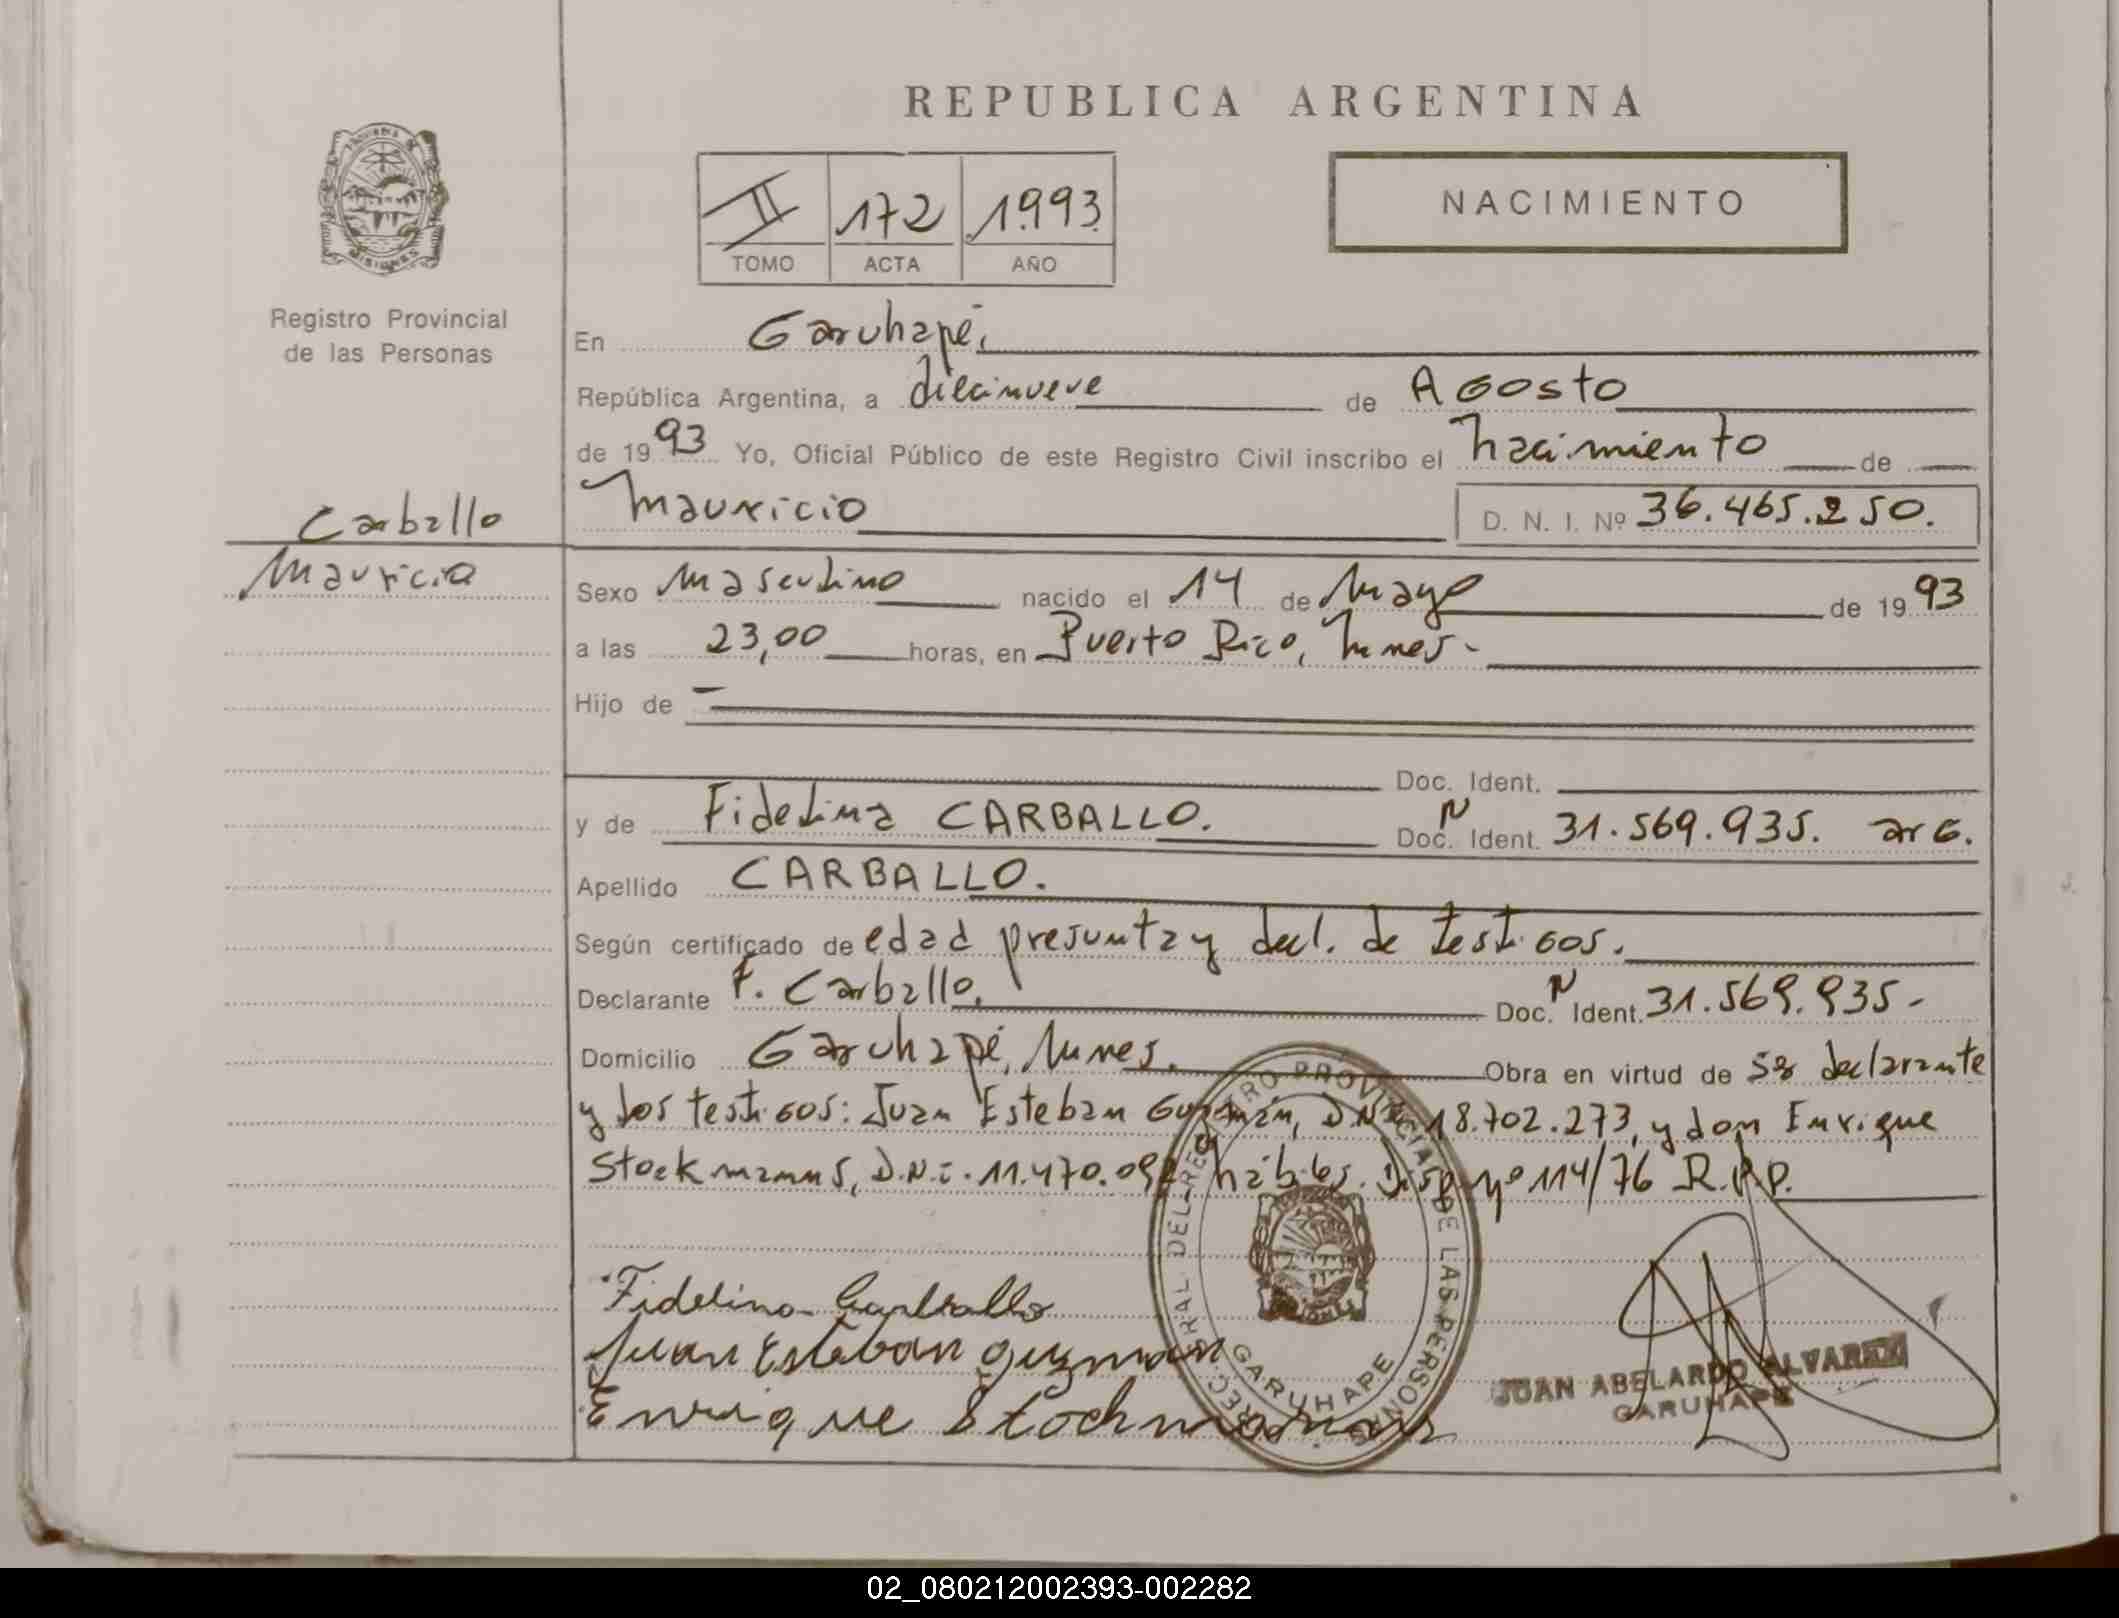 REPUBLICA ARGENTINA
II 172 1993
TOMO ACTA AÑO
NACIMIENTO
Registro Provincial
de las Personas
En Garuhapé,
República Argentina, a diecinueve de Agosto
de 1993 Yo, Oficial Público de este Registro Civil inscribo el nacimiento de
Mauricio D. N. I. Nº 36.465.250.
Carballo
Mauricio
Sexo Masculino nacido el 14 de Mayo de 1993
a las 23,00 horas, en Puerto Rico, Mnes-
Hijo de -
Doc. Ident.
y de Fidelina CARBALLO. Doc. N Ident. 31.569.935. arg.
Apellido CARBALLO.
Según certificado de edad presunta y decl. de testigos.
Declarante F. Carballo. Doc. N Ident. 31.569.935-
Domicilio Garuhapé, Mnes. Obra en virtud de ser declarante
y los testigos: Juan Esteban Guzmán, D.N.I. 18.702.273, y don Enrique
Stockmanns, D.N.I. 11.470.09 hábiles. Disp. nº 114/76 R.P.P.
Fidelina Carballo
Juan Esteban guzman
Enrique Stockmanns
DEL REGISTRO PROVINCIAL DE LAS PERSONAS
GARUHAPE
JUAN ABELARDO ALVAREZ
GARUHAPE
02_080212002393-002282